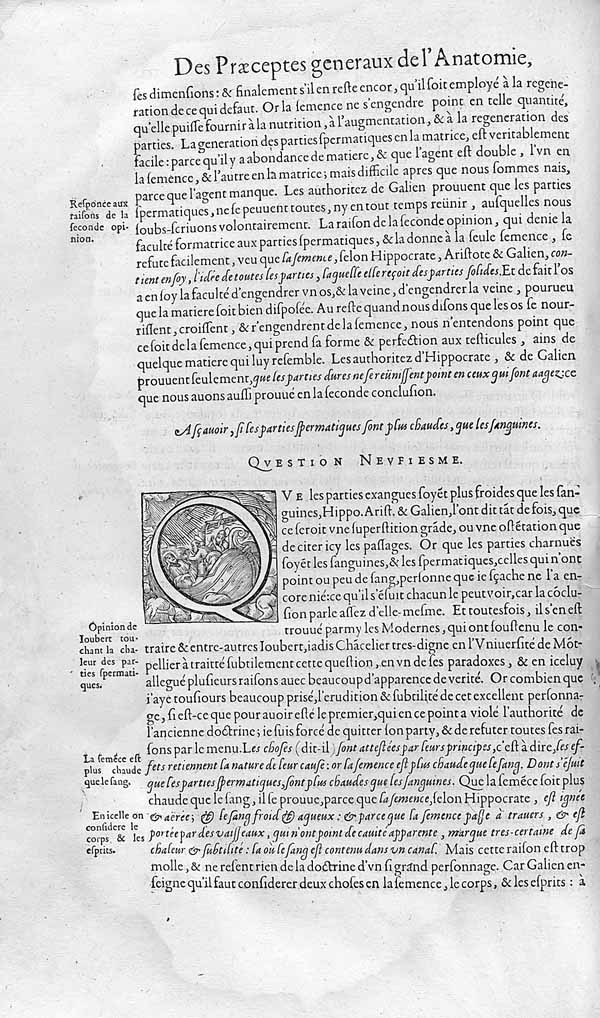 Des Præceptes generaux de l'Anatomie,
ſes dimenſions: & finalement s'il en reſte encor, qu'il ſoit employé à la regene-
ration de ce qui defaut. Or la ſemence ne s'engendre point en telle quantité,
qu'elle puiſſe fournir à la nutrition, à l'augmentation, & à la regeneration des
parties. La generation des parties ſpermatiques en la matrice, eſt veritablement
facile: parce qu'il y a abondance de matiere, & que l'agent eſt double, l'vn en
la ſemence, & l'autre en la matrice; mais difficile apres que nous ſommes nais,
parce que l'agent manque. Les authoritez de Galien prouuent que les parties
ſpermatiques, ne ſe peuuent toutes, ny en tout temps reünir, auſquelles nous
ſoubs-ſcriuons volontairement. La raiſon de la ſeconde opinion, qui denie la
faculté formatrice aux parties ſpermatiques, & la donne à la ſeule ſemence, ſe
refute facilement, veu que la ſemence, ſelon Hippocrate, Ariſtote & Galien, con-
tient en ſoy, l'idée de toutes les parties, laquelle elle reçoit des parties ſolides. Et de fait l'os
a en ſoy la faculté d'engendrer vn os, & la veine, d'engendrer la veine, pourueu
que la matiere ſoit bien diſpoſée. Au reſte quand nous diſons que les os ſe nour-
riſſent, croiſſent, & r'engendrent de la ſemence, nous n'entendons point que
ce ſoit de la ſemence, qui prend ſa forme & perfection aux teſticules, ains de
quelque matiere qui luy reſemble. Les authoritez d'Hippocrate, & de Galien
prouuent ſeulement, que les parties dures ne ſe reüniſſent point en ceux qui ſont aagez: ce
que nous auons auſſi prouué en la ſeconde concluſion.
Reſponce aux
raiſons de la
ſeconde opi-
nion.
Aſçauoir, ſi les parties ſpermatiques ſont plus chaudes, que les ſanguines.
QVESTION NEVFIESME.
QVE les parties exangues ſoyēt plus froides que les ſan-
guines, Hippo. Ariſt. & Galien, l'ont dit tāt de fois, que
ce ſeroit vne ſuperſtition grāde, ou vne oſtētation que
de citer icy les paſſages. Or que les parties charnuës
ſoyēt les ſanguines, & les ſpermatiques, celles qui n'ont
point ou peu de ſang, perſonne que ie ſçache ne l'a en-
core nié: ce qu'il s'ēſuit chacun le peut voir, car la cōclu-
ſion parle aſſez d'elle-meſme. Et toutesfois, il s'en eſt
trouué parmy les Modernes, qui ont ſouſtenu le con-
traire & entre-autres Ioubert, iadis Chācelier tres-digne en l'Vniuerſité de Mōt-
pellier à traitté ſubtilement cette queſtion, en vn de ſes paradoxes, & en iceluy
allegué pluſieurs raiſons auec beaucoup d'apparence de verité. Or combien que
i'aye touſiours beaucoup priſé, l'erudition & ſubtilité de cet excellent perſonna-
ge, ſi eſt-ce que pour auoir eſté le premier, qui en ce point a violé l'authorité de
l'ancienne doctrine; ie ſuis forcé de quitter ſon party, & de refuter toutes ſes rai-
ſons par le menu. Les choſes (dit-il) ſont atteſtées par leurs principes, c'eſt à dire, les ef-
fets retiennent la nature de leur cauſe: or la ſemence eſt plus chaude que le ſang. Dont s'ēſuit
que les parties ſpermatiques, ſont plus chaudes que les ſanguines. Que la ſemēce ſoit plus
chaude que le ſang, il ſe prouue, parce que la ſemence, ſelon Hippocrate, eſt ignée
& aërée; & le ſang froid & aqueux: & parce que la ſemence paſſe à trauers, & eſt
portée par des vaiſſeaux, qui n'ont point de cauité apparente, marque tres-certaine de ſa
chaleur & ſubtilité: là où le ſang eſt contenu dans vn canal. Mais cette raiſon eſt trop
molle, & ne reſent rien de la doctrine d'vn ſi grand perſonnage. Car Galien en-
ſeigne qu'il faut conſiderer deux choſes en la ſemence, le corps, & les eſprits: à
Opinion de
Ioubert tou-
chant la cha-
leur des par-
ties ſpermati-
ques.
La ſemēce eſt
plus chaude
que le ſang.
En icelle on
conſidere le
corps & les
eſprits.